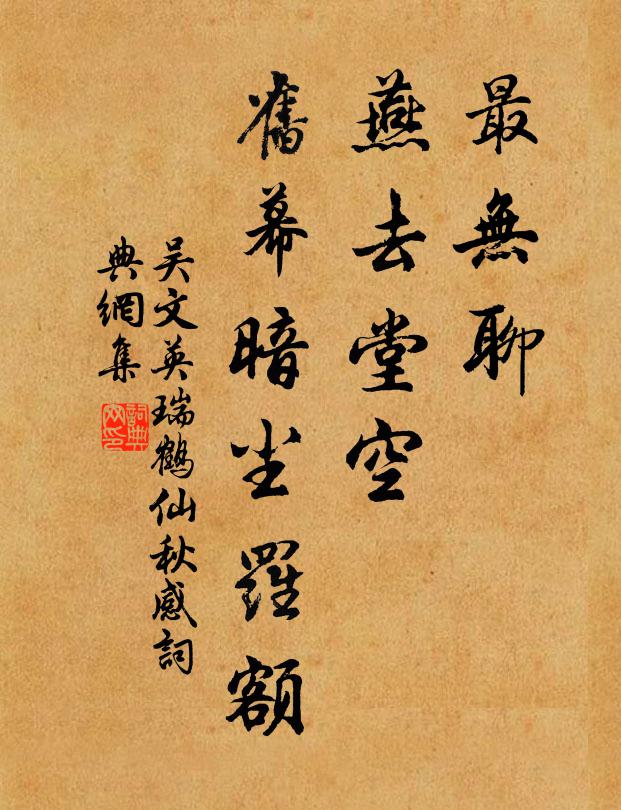 最無聊
燕去堂空
舊幕暗尘羅額
吴文英瑞鶴仙秋感詞
典網集
詞典网印